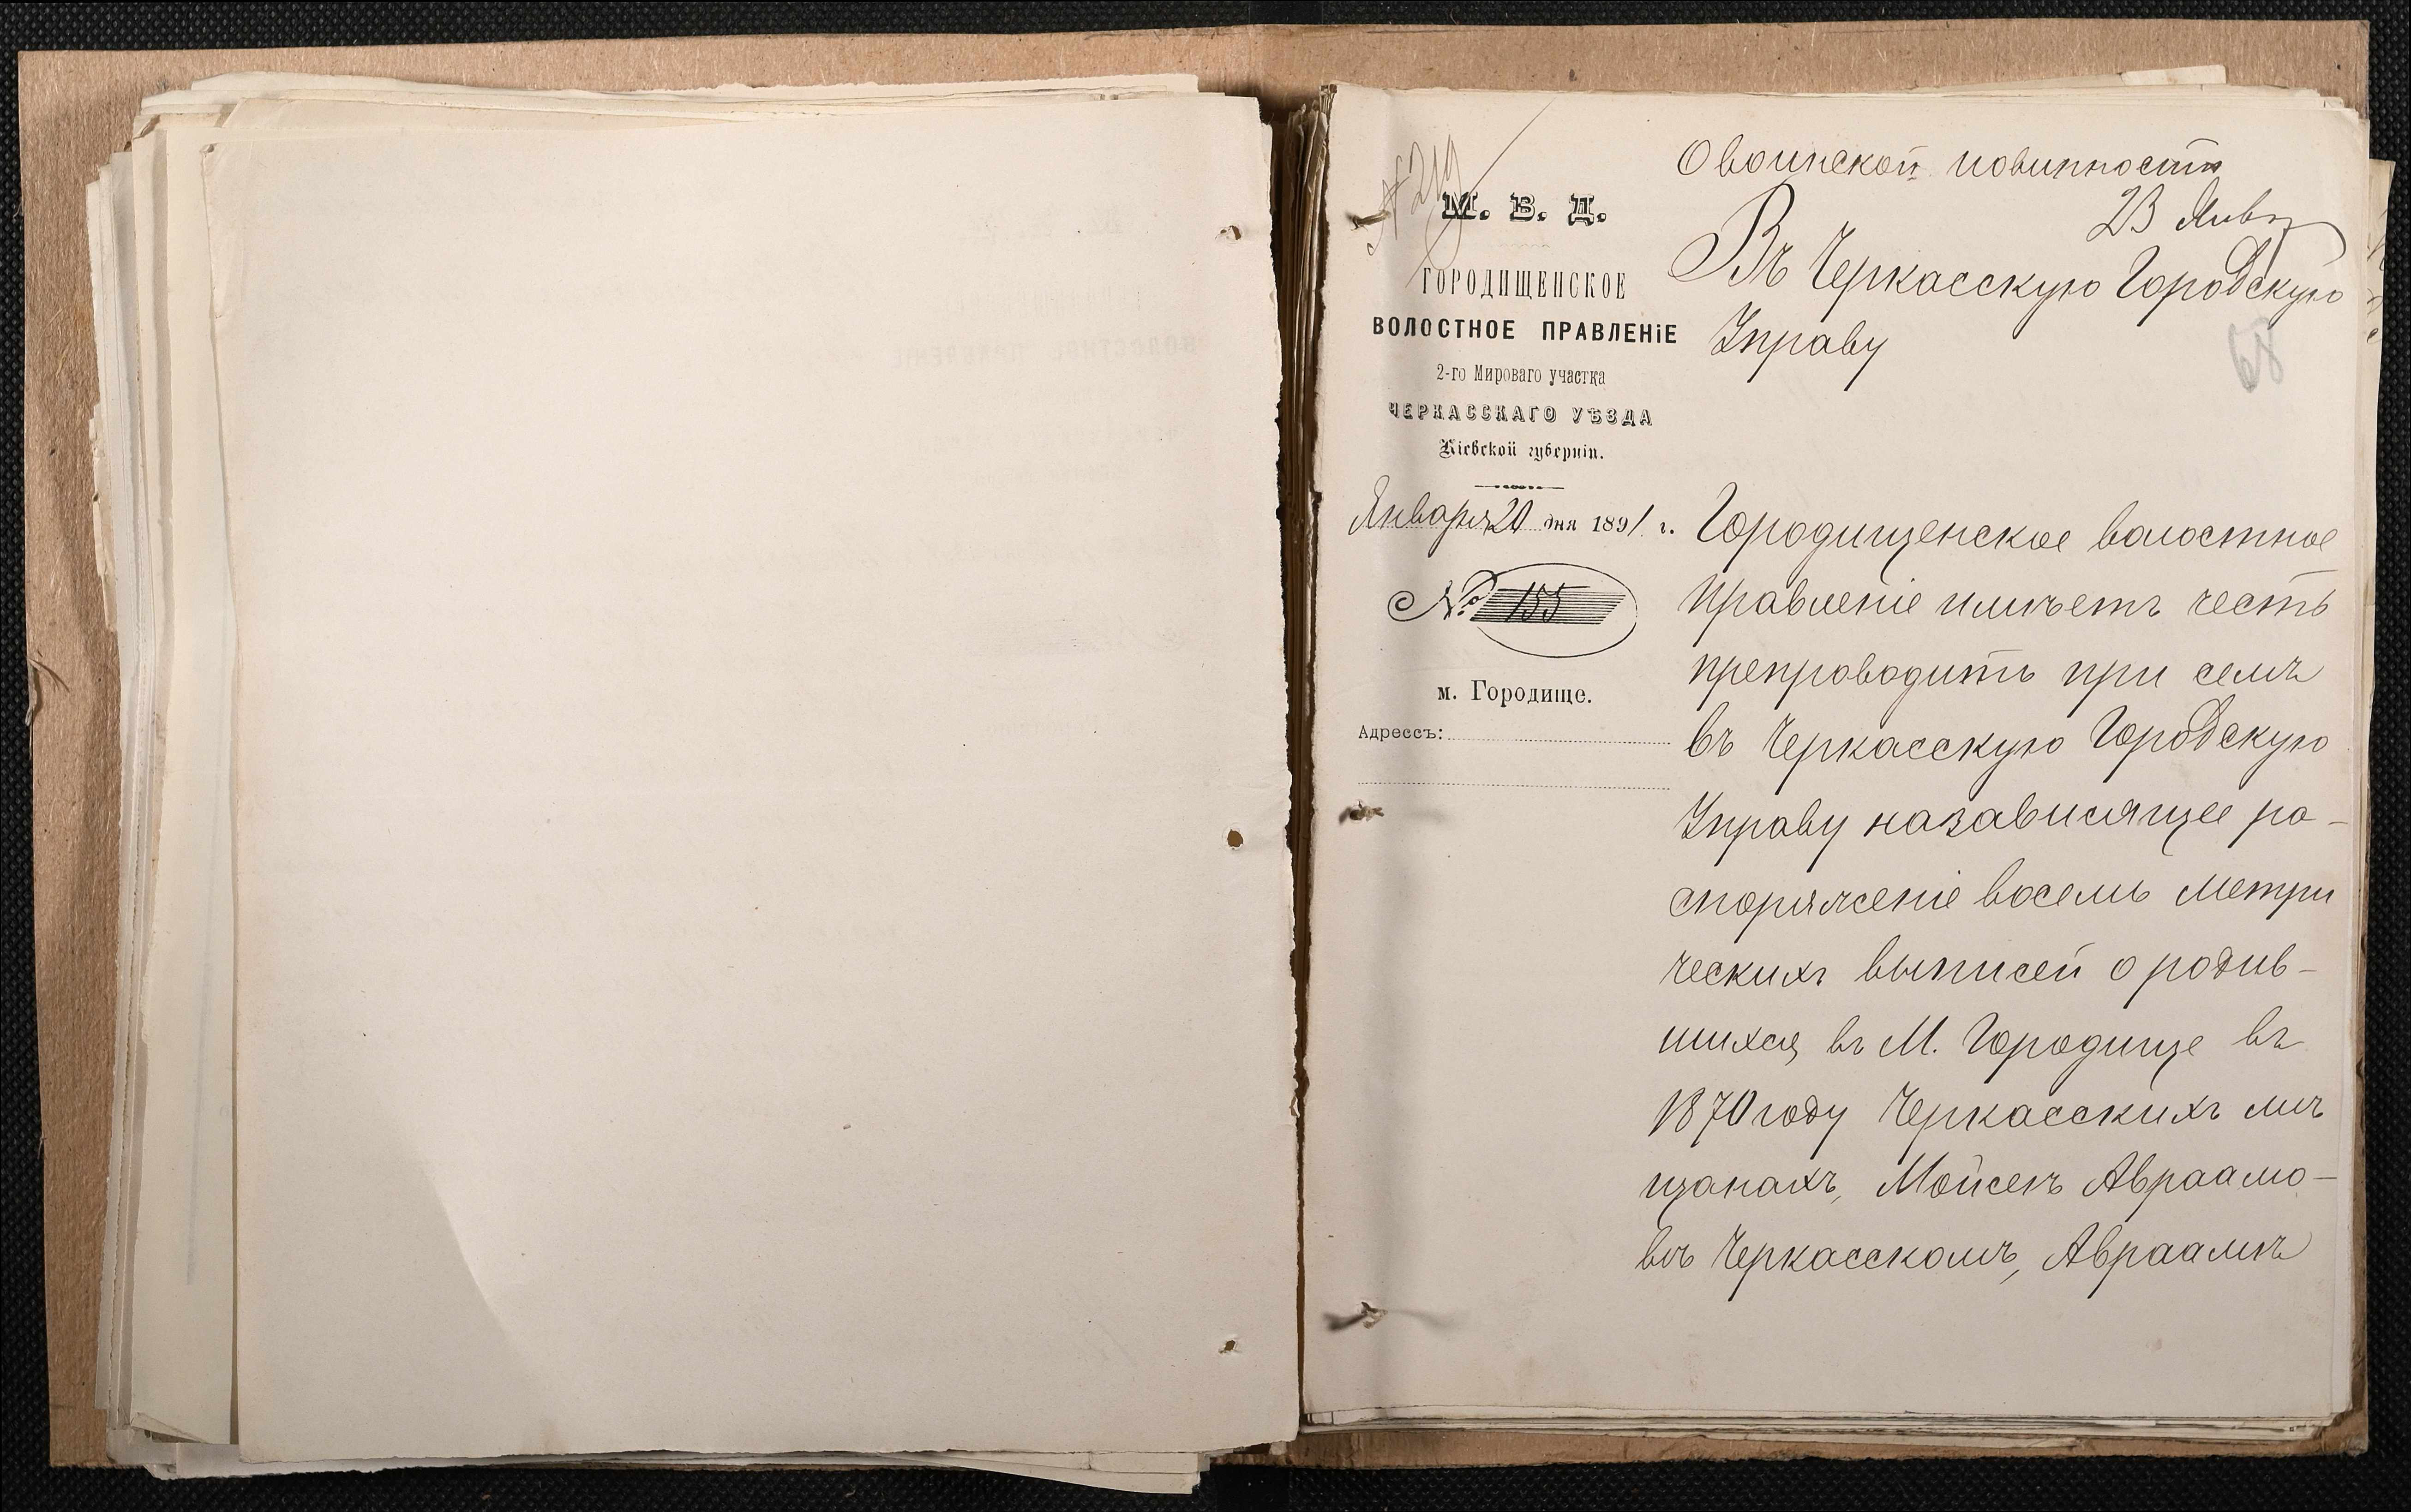 № 219
М. В. Д.
ГОРОДИЩЕНСКОЕ
ВОЛОСТНОЕ ПРАВЛЕНіЕ
2-го Мироваго участка
ЧЕРКАССКАГО УѢЗДА
Кіевской губерніи.
Января 20 дня 1891 г.
№ 155
м. Городище.
Адрессъ:
О воинской повинности
23 Янв
Въ Черкасскую Городскую
Управу
68
Городищенское волостное
Правленіе имѣетъ честь
препроводить при семъ
въ Черкасскую Городскую
Управу назависящее ра-
споряженіе восемь метри
ческихъ выписей о родив-
шихся въ М. Городище въ
1870 году Черкасскихъ мѣ
щанахъ, Мойсеѣ Авраамо-
вѣ Черкасскомъ, Авраамѣ